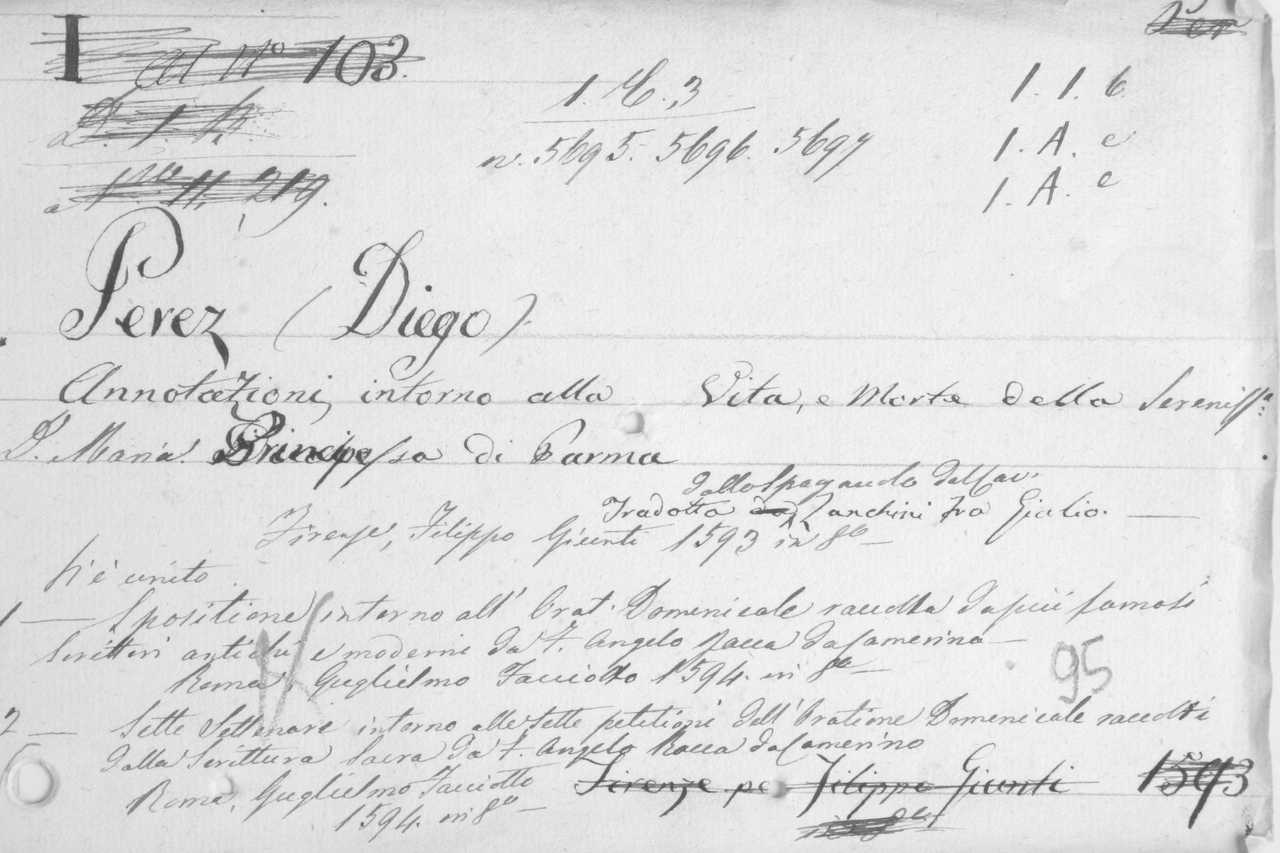 Per
I cat N° 103.
1. C. 3
1. 1. b
n. 5695. 5696. 5697
1. A. e
1. A. e
11. 219.
Perez (Diego)
Annotazioni intorno alla Vita, e Morte della Sereniss.a
D. Maria Principessa di Parma
dallo Spagnuolo dal Cav.
Tradotta da Zanchini fra Giulio. —
Firenze, Filippo Giunti 1593 in 8° —
Vi è unito
1 — Spositione intorno all' Orat. Domenicale raccolta da più famosi
Scrittori antichi e moderni da F. Angelo Rocca da Camerino —
Roma Guglielmo Facciotto 1594. in 8° —
95
2 — Sette Settenarî intorno alle sette petitioni dell' Oratione Domenicale raccolti
dalla Scrittura Sacra da F. Angelo Rocca da Camerino
Roma, Guglielmo Facciotto
1594. in 8° —
Firenze pe Filippo Giunti 1593
in 8°